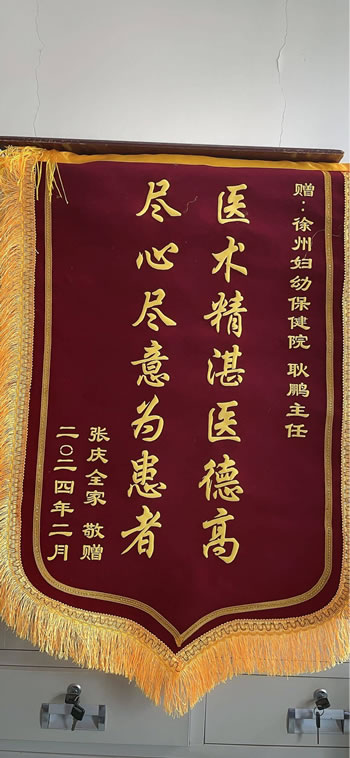 赠：徐州妇幼保健院 耿鹏主任
医术精湛医德高
尽心尽意为患者
张庆全家 敬赠
二〇二四年二月